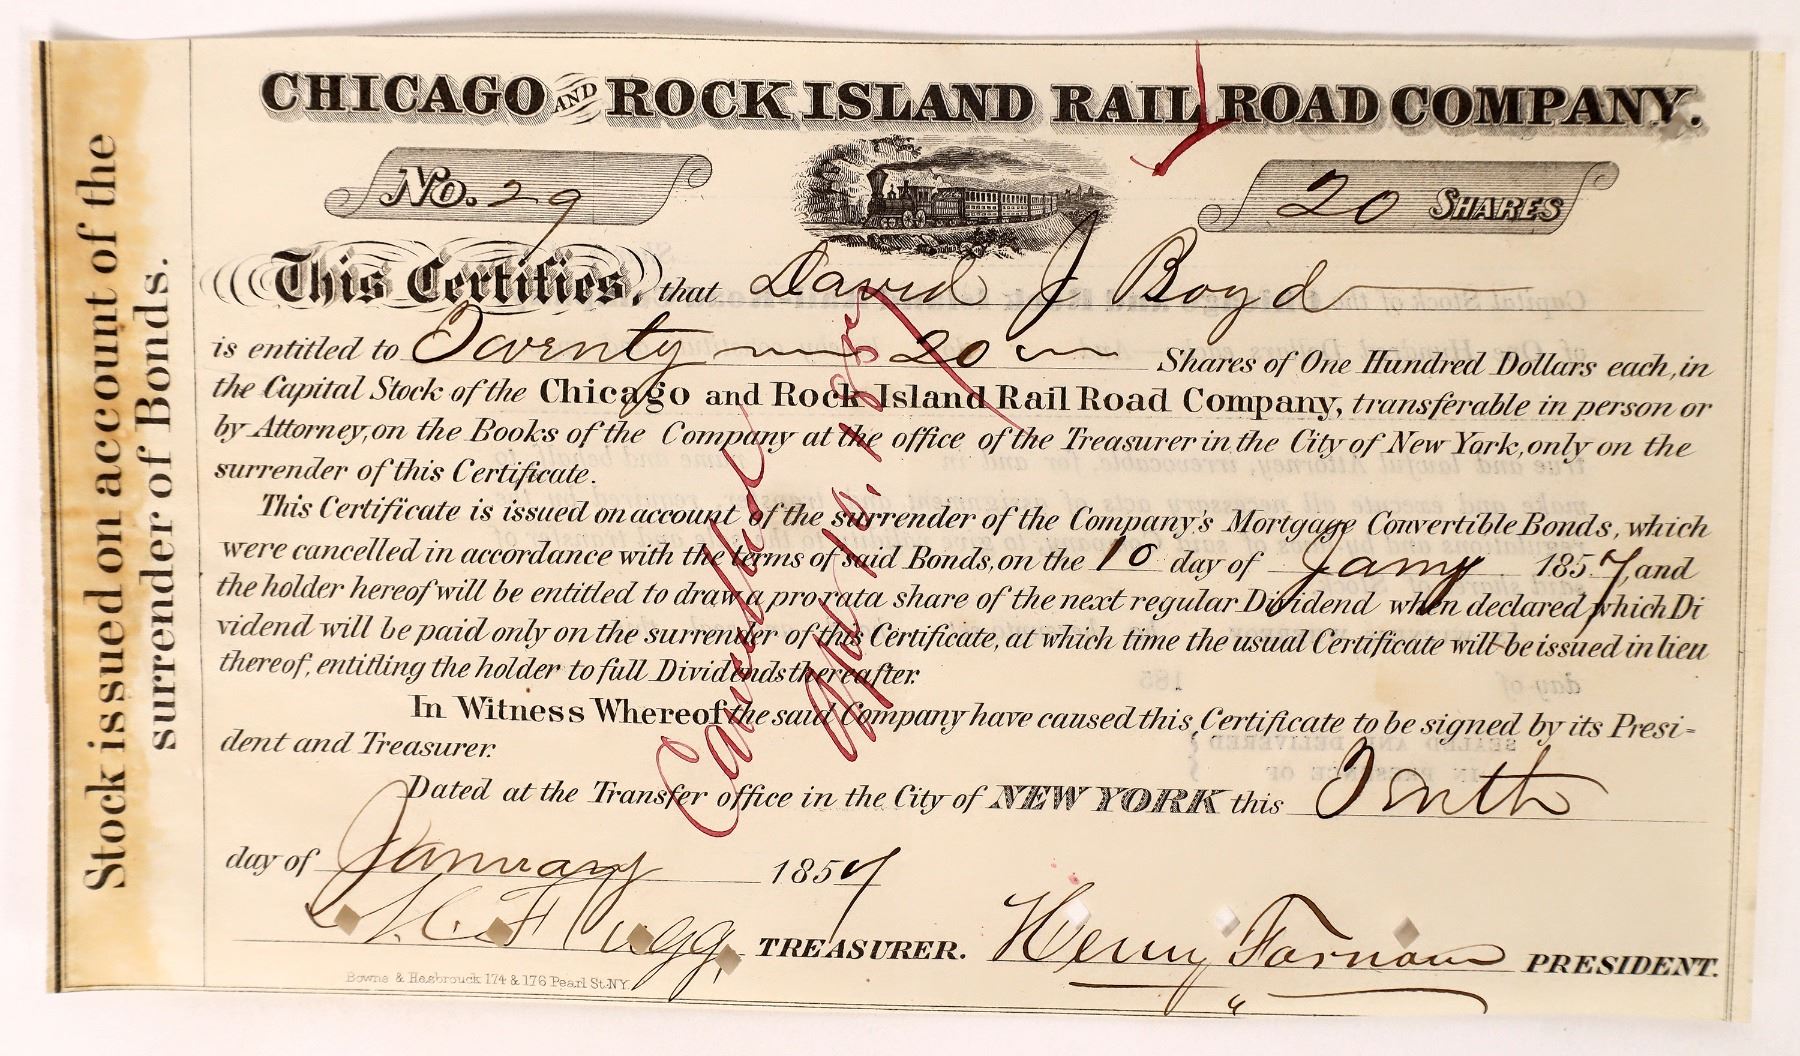 CHICAGO AND ROCK ISLAND RAIL ROAD COMPANY.
No. 29
20 SHARES
This Certifies, that David J Boyd
is entitled to Twenty 20 Shares of One Hundred Dollars each, in
the Capital Stock of the Chicago and Rock Island Rail Road Company, transferable in person or
by Attorney, on the Books of the Company at the office of the Treasurer in the City of New York, only on the
surrender of this Certificate.
This Certificate is issued on account of the surrender of the Company's Mortgage Convertible Bonds, which
were cancelled in accordance with the terms of said Bonds, on the 10 day of Jany 1857, and
the holder hereof will be entitled to draw a pro rata share of the next regular Dividend when declared which Di
vidend will be paid only on the surrender of this Certificate, at which time the usual Certificate will be issued in lieu
thereof, entitling the holder to full Dividends thereafter.
In Witness Whereof the said Company have caused this Certificate to be signed by its Presi=
dent and Treasurer.
Dated at the Transfer office in the City of NEW YORK this Tenth
day of January 1857
TREASURER. Henry Farnam PRESIDENT.
Bowne & Hasbrouck 174 & 176 Pearl St. N.Y.
Stock issued on account of the
surrender of Bonds.
Cancelled
April